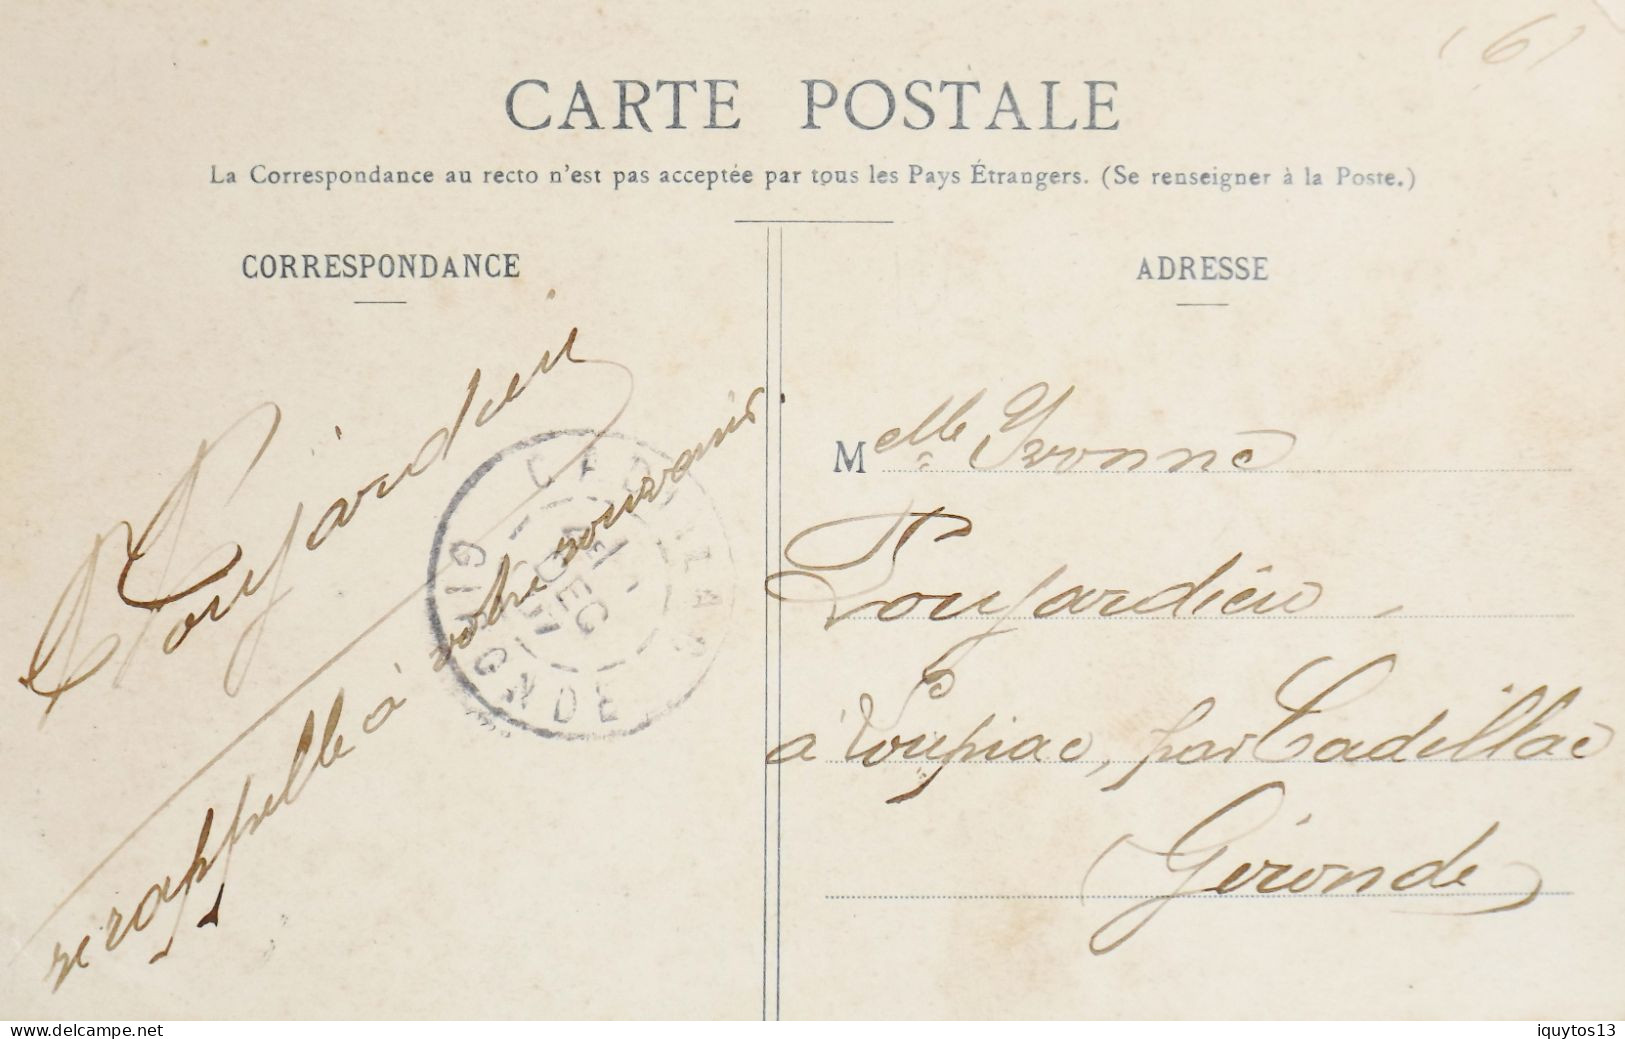 (6)
CARTE POSTALE
La Correspondance au recto n'est pas acceptée par tous les Pays Étrangers. (Se renseigner à la Poste.)
CORRESPONDANCE
Poujardieu
se rappelle à votre souvenir
CADILLAC
DEC
GIRONDE
ADRESSE
Melle Yvonne
Poujardieu
à Loupiac, par Cadillac
(Gironde)
www.delcampe.net
iquytos13